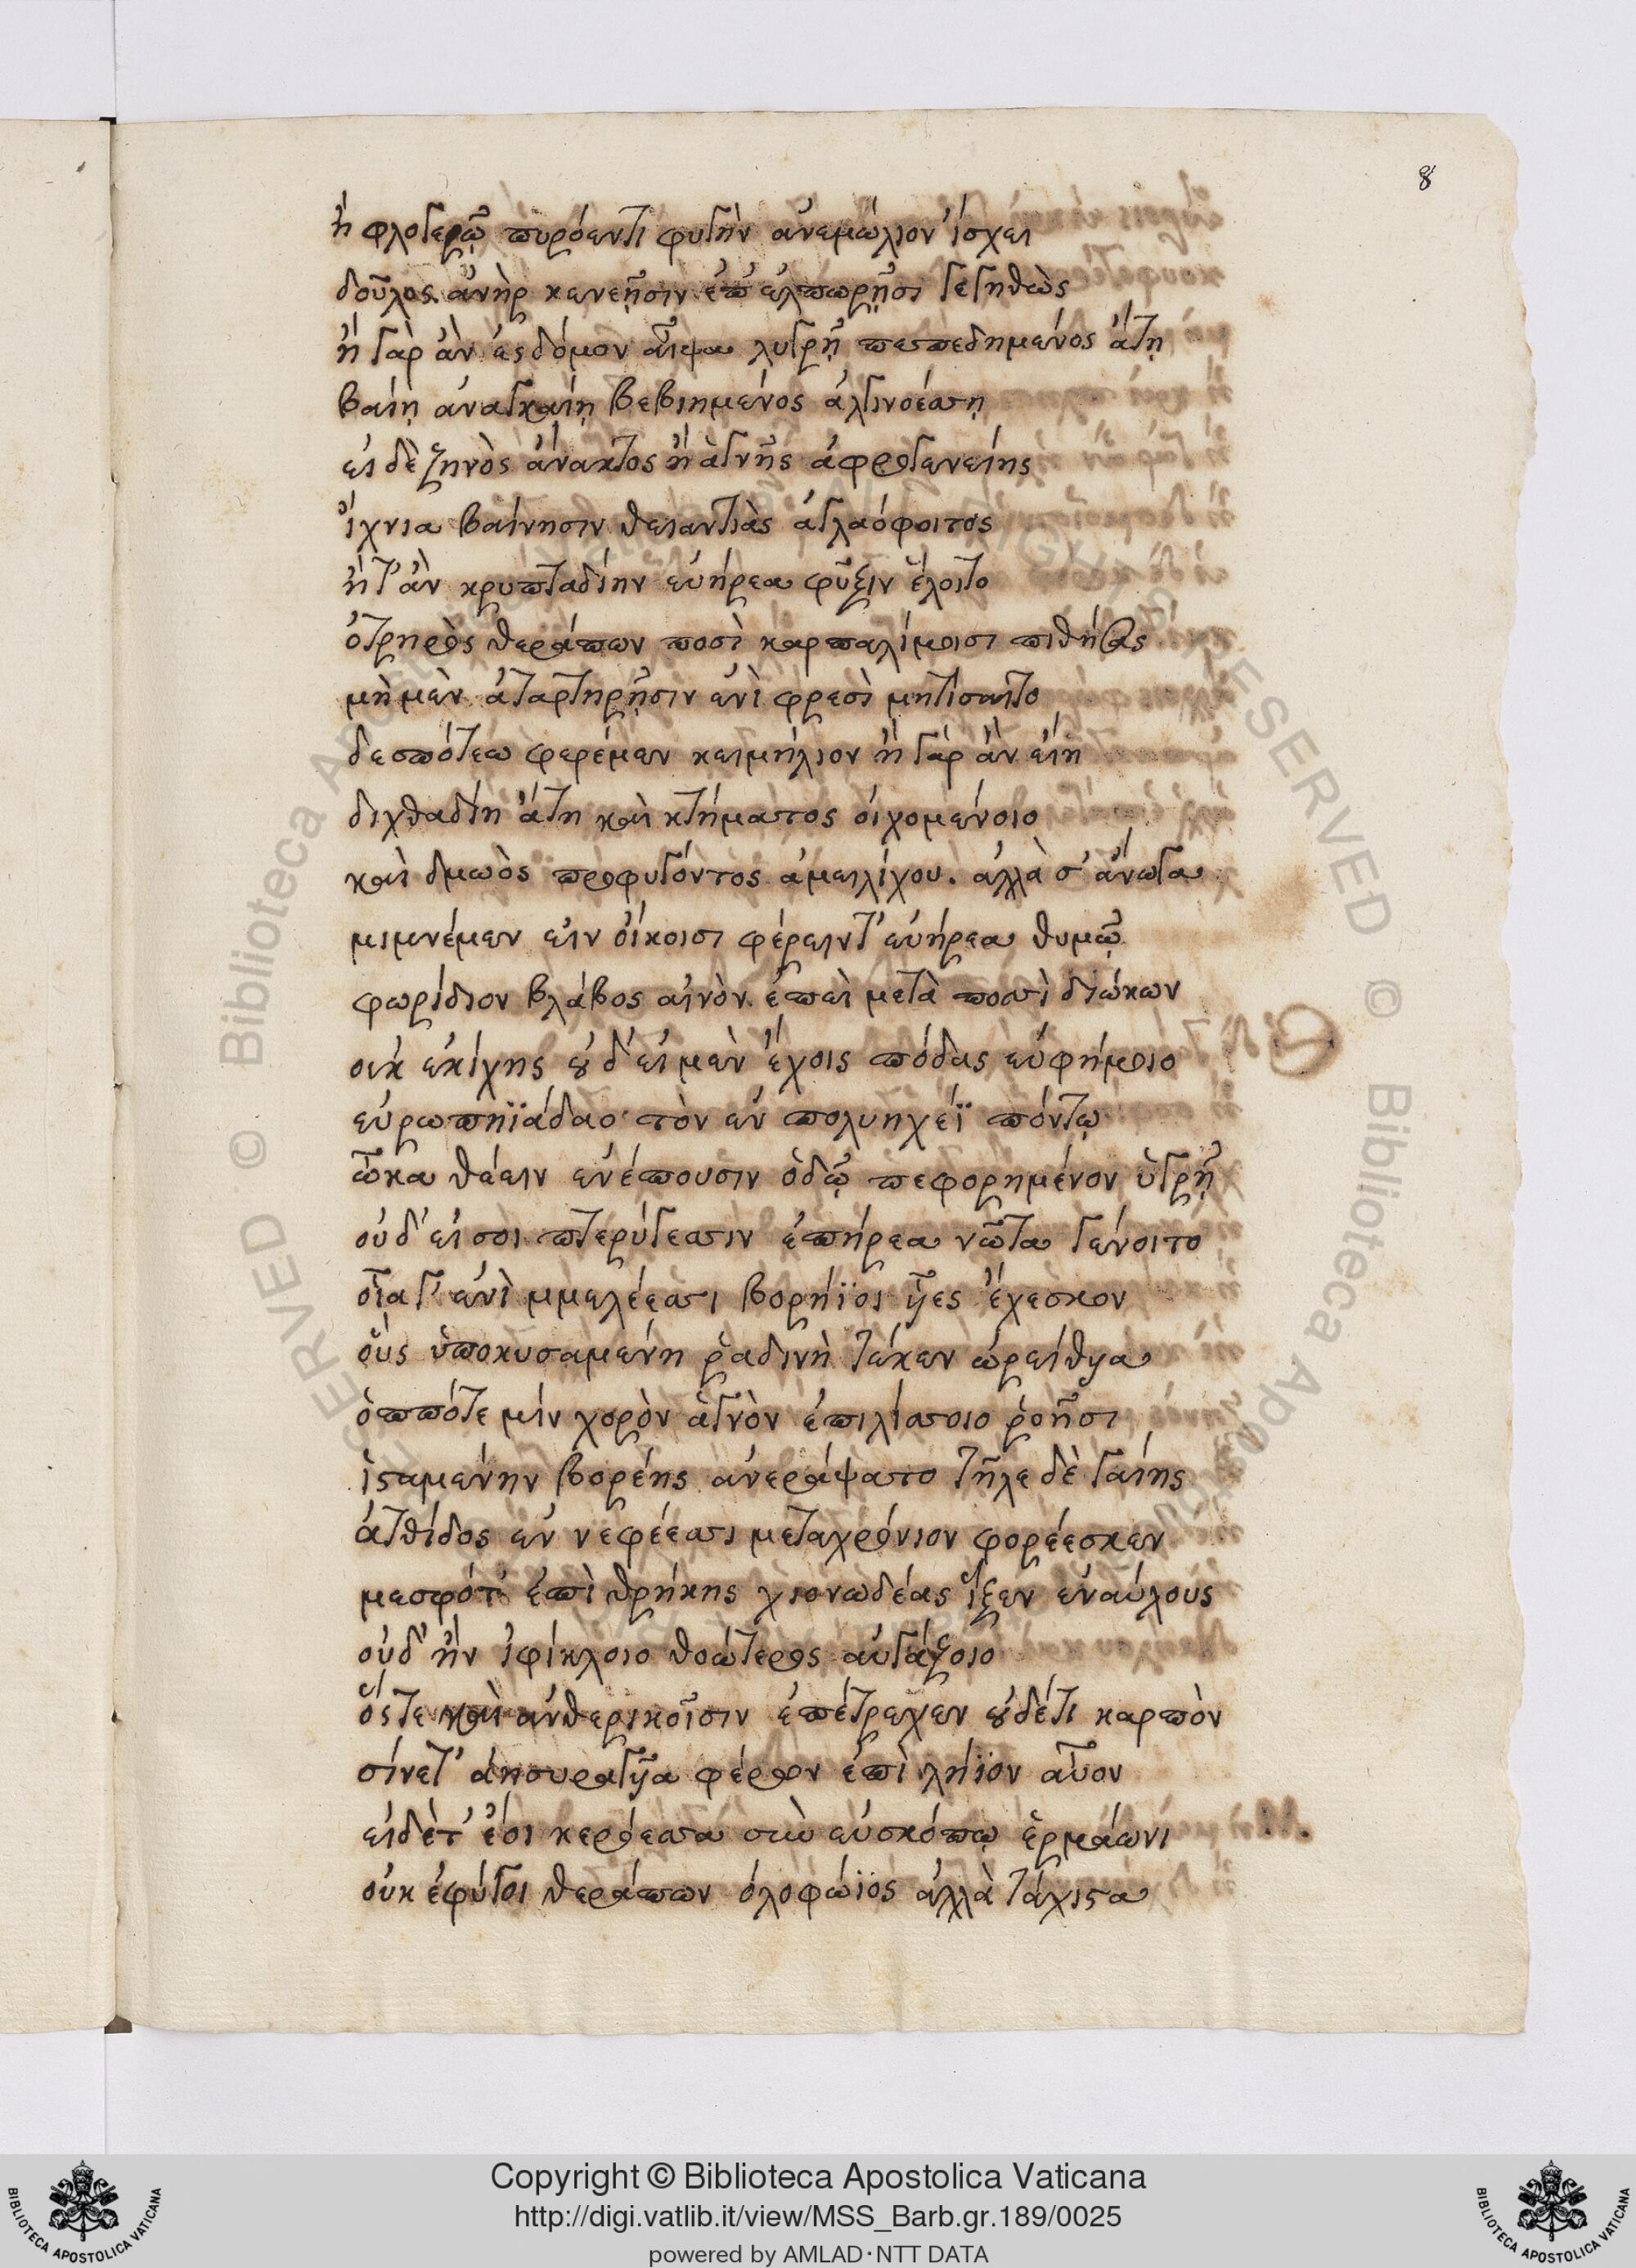 8
ἢ φλογερῷ πυρόεντι φυγὴν ἀνεμώλιον ἴσχει
δοῦλος ἀνὴρ κενεῇσιν ἐπ' ἐλπωρῇσι γεγηθὼς
ἢ γὰρ ἂν ἐς δόμον αἶψα λυγρῇ πεπεδημένος ἄτῃ
βαίη ἀναγκαίῃ βεβιημένος ἀλγινοέσσῃ
εἰ δὲ ζηνὸς ἄνακτος ἢ ἁγνῆς ἀφρογενείης
ἴχνια βαίνησιν θειαντιὰς ἀγλαόφοιτος
ἤτ' ἂν κρυπταδίην εὐήρεα φῦξιν ἕλοιτο
ὀτρηρὸς θεράπων ποσὶ καρπαλίμοισι πιθήσας
μὴ μὲν ἀταρτηρῇσιν ἐνὶ φρεσὶ μητίσαιτο
δεσπότεω φερέμεν κειμήλιον ἢ γάρ ἂν εἴη
διχθαδίη ἄτη καὶ κτήματος οἰχομένοιο
καὶ δμωὸς προφυγόντος ἀμειλίχου. ἀλλὰ σ' ἄνωγα
μιμνέμεν εἰν οἴκοισι φέρειντ' εὐήρεα θυμῷ
φωρίδιον βλάβος αἰνὸν. ἐπεὶ μετὰ ποσσὶ διώκων
οὐκ ἐκίχης οὐδ' εἰ μὲν ἔχοις πόδας εὐφήμοιο
εὐρωπηϊάδαο τὸν ἐν πολυηχέϊ πόντῳ
ὦκα θέειν ἐνέπουσιν ὁδῷ πεφορημένον ὑγρῇ
οὐδ' εἴ σοι πτερύγεσσιν ἐπήρεα νῶτα γένοιτο
οἷα γ' ἐνὶ μμελέεσσι βορήϊοι υἷες ἔχεσκον
οὓς ὑποκυσαμένη ῥαδινὴ τέκεν ὠρείθυα
ὁππότε μίν χορὸν ἁγνὸν ἐπιλίσσοιο ῥοῇσι
ἱσταμένην βορέης ἀνερέψατο τῆλε δὲ γαίης
ἀτθίδος ἐν νεφέεσσι μεταχρόνιον φορέεσκεν
μεσφότ' ἐπὶ θρήκης χιονωδέας ἷξεν ἐναύλους
οὐδ' ἢν ἰφίκλοιο θοώτερος αὐγάζοιο
ὅς τε καὶ ἀνθερικοῖσιν ἐπέτρεχεν οὐδέτι καρπὸν
σίνετ' φέρων ἐπὶ λήϊον αὖον
εἰδὲτ' ἔοι κερδέεσσα σὺν εὐσκόπῳ ἑρμάωνι
οὐκ ἐφύγοι θεράπων ὀλοφώϊος ἀλλὰ τάχιστα
Copyright © Biblioteca Apostolica Vaticana
http://digi.vatlib.it/view/MSS_Barb.gr.189/0025
powered by AMLAD·NTT DATA